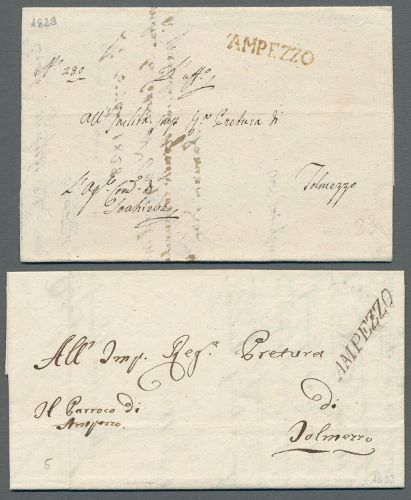 1828
AMPEZZO
N.° 280 D'uff.o
All' Inclita Imp. R.a Pretura di
Tolmezzo
L'Ag.e Com.e di
Socchieve
23
AMPEZZO
All' Imp. Reg.a Pretura
Il Parroco di
Ampezzo.
di
Tolmezzo
5